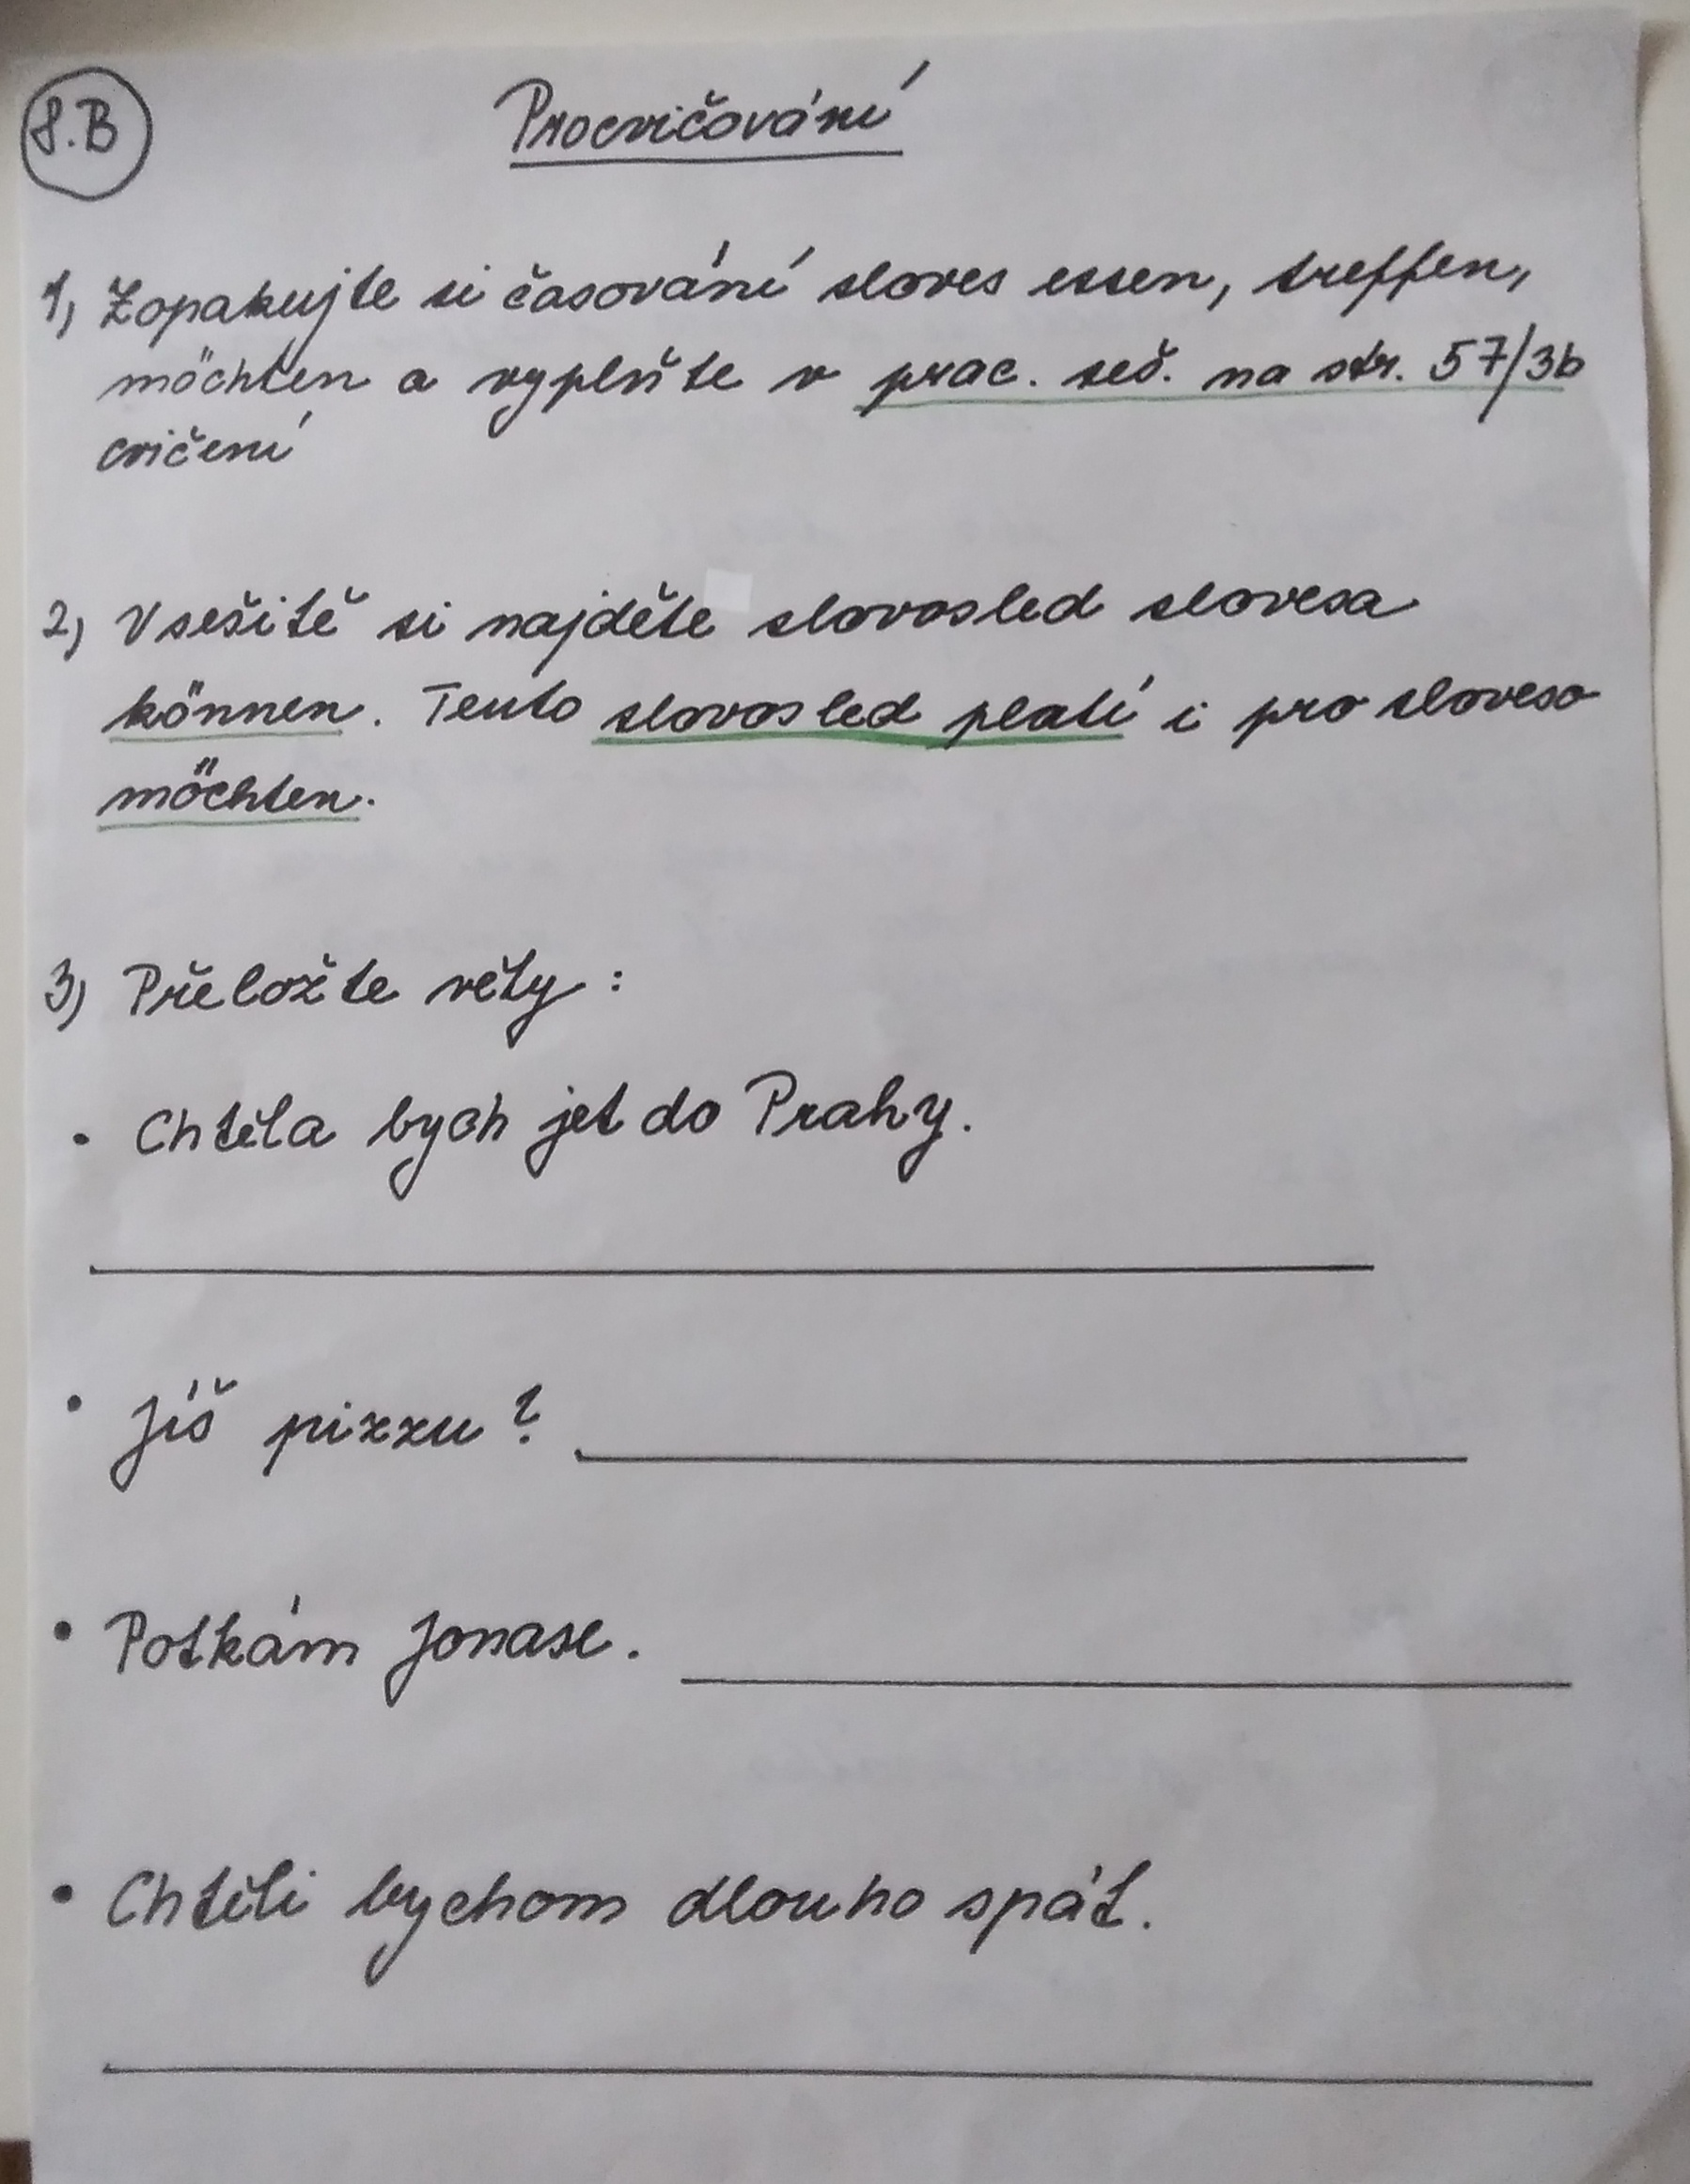 8.B
Procvičování
1) Zopakujte si časování sloves essen, treffen,
möchten a vyplňte v prac. seš. na str. 57/3b
cvičení
2) V sešitě si najděte slovosled slovesa
können. Tento slovosled platí i pro sloveso
möchten.
3) Přeložte věty:
• Chtěla bych jet do Prahy.
• Jíš pizzu?
• Potkám Jonase.
• Chtěli bychom dlouho spát.